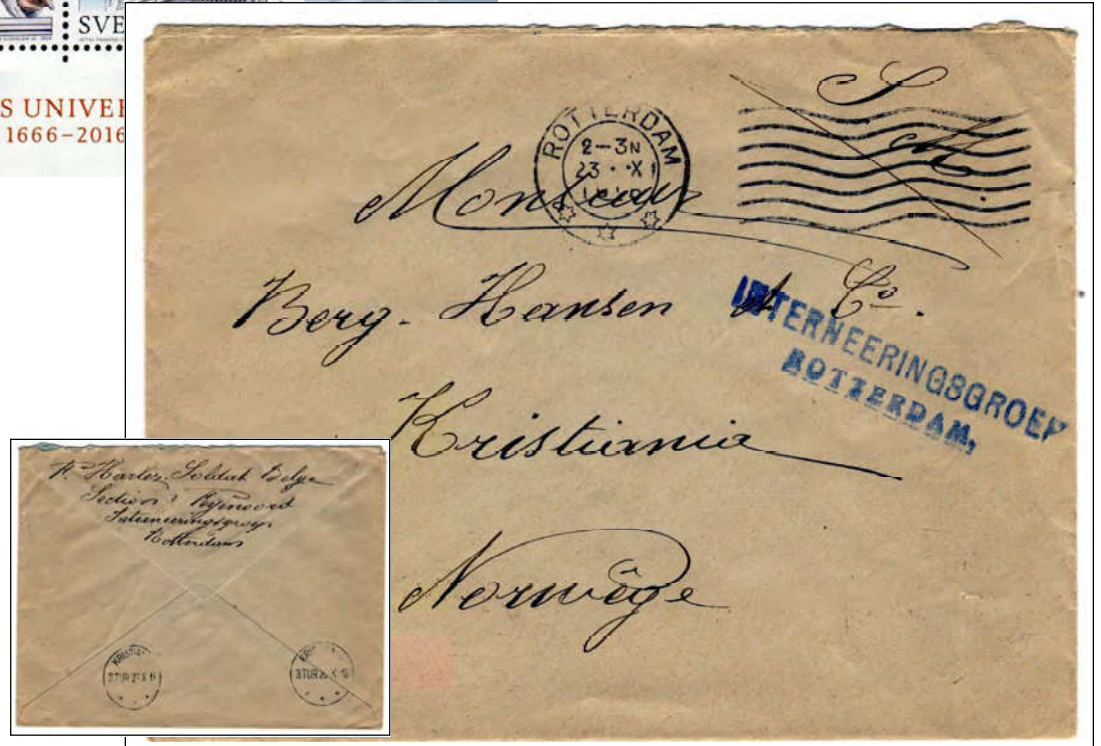 SVE
S UNIVER
1666–2016
ROTTERDAM
2–3N
23 · XI
S M
Monsieur
Berg-Hansen & Co.
INTERNEERINGSGROEP
ROTTERDAM,
Kristiania
Norwège
Harlez Soldat Belge
Section Feijenoord
Interneeringsgroep
Rotterdam
KRISTIA